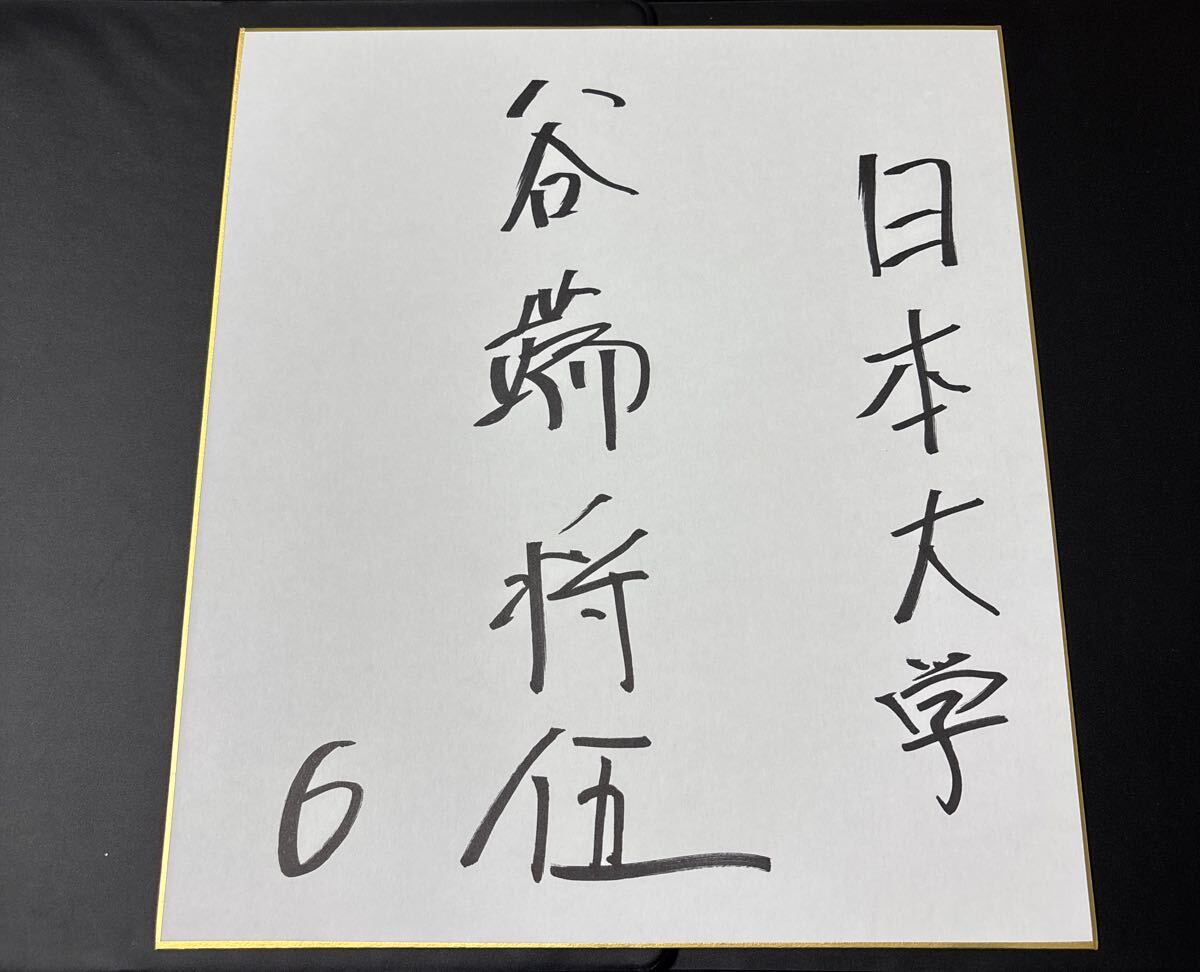 日本大学
谷端将伍
6